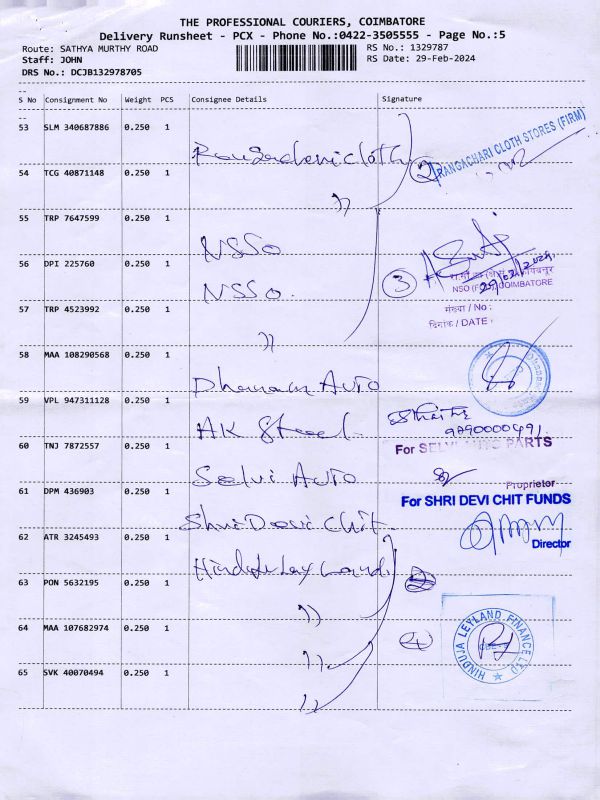 THE PROFESSIONAL COURIERS, COIMBATORE
Delivery Runsheet - PCX - Phone No.:0422-3505555 - Page No.:5
Route: SATHYA MURTHY ROAD RS No.: 1329787
Staff: JOHN RS Date: 29-Feb-2024
DRS No.: DCJB132978705
S No Consignment No Weight PCS Consignee Details Signature
53 SLM 340687886 0.250 1
Rangachari cloth 2 RANGACHARI CLOTH STORES (FIRM)
54 TCG 40871148 0.250 1
"
55 TRP 7647599 0.250 1
NSSO
56 DPI 225760 0.250 1
NSSO. 3
29/02/2024
NSO (FOD), COIMBATORE
57 TRP 4523992 0.250 1
संख्या / No :
दिनांक / DATE :
"
58 MAA 108290568 0.250 1
Auto
59 VPL 947311128 0.250 1
AK Steel
60 TNJ 7872557 0.250 1
For SELVI AUTO PARTS
Selvi Auto
Proprietor
61 DPM 436903 0.250 1
For SHRI DEVI CHIT FUNDS
Shri Devi Chit
Director
62 ATR 3245493 0.250 1
63 PON 5632195 0.250 1
"
64 MAA 107682974 0.250 1
4
HINDUJA LEYLAND FINANCE LTD
"
65 SVK 40070494 0.250 1
"